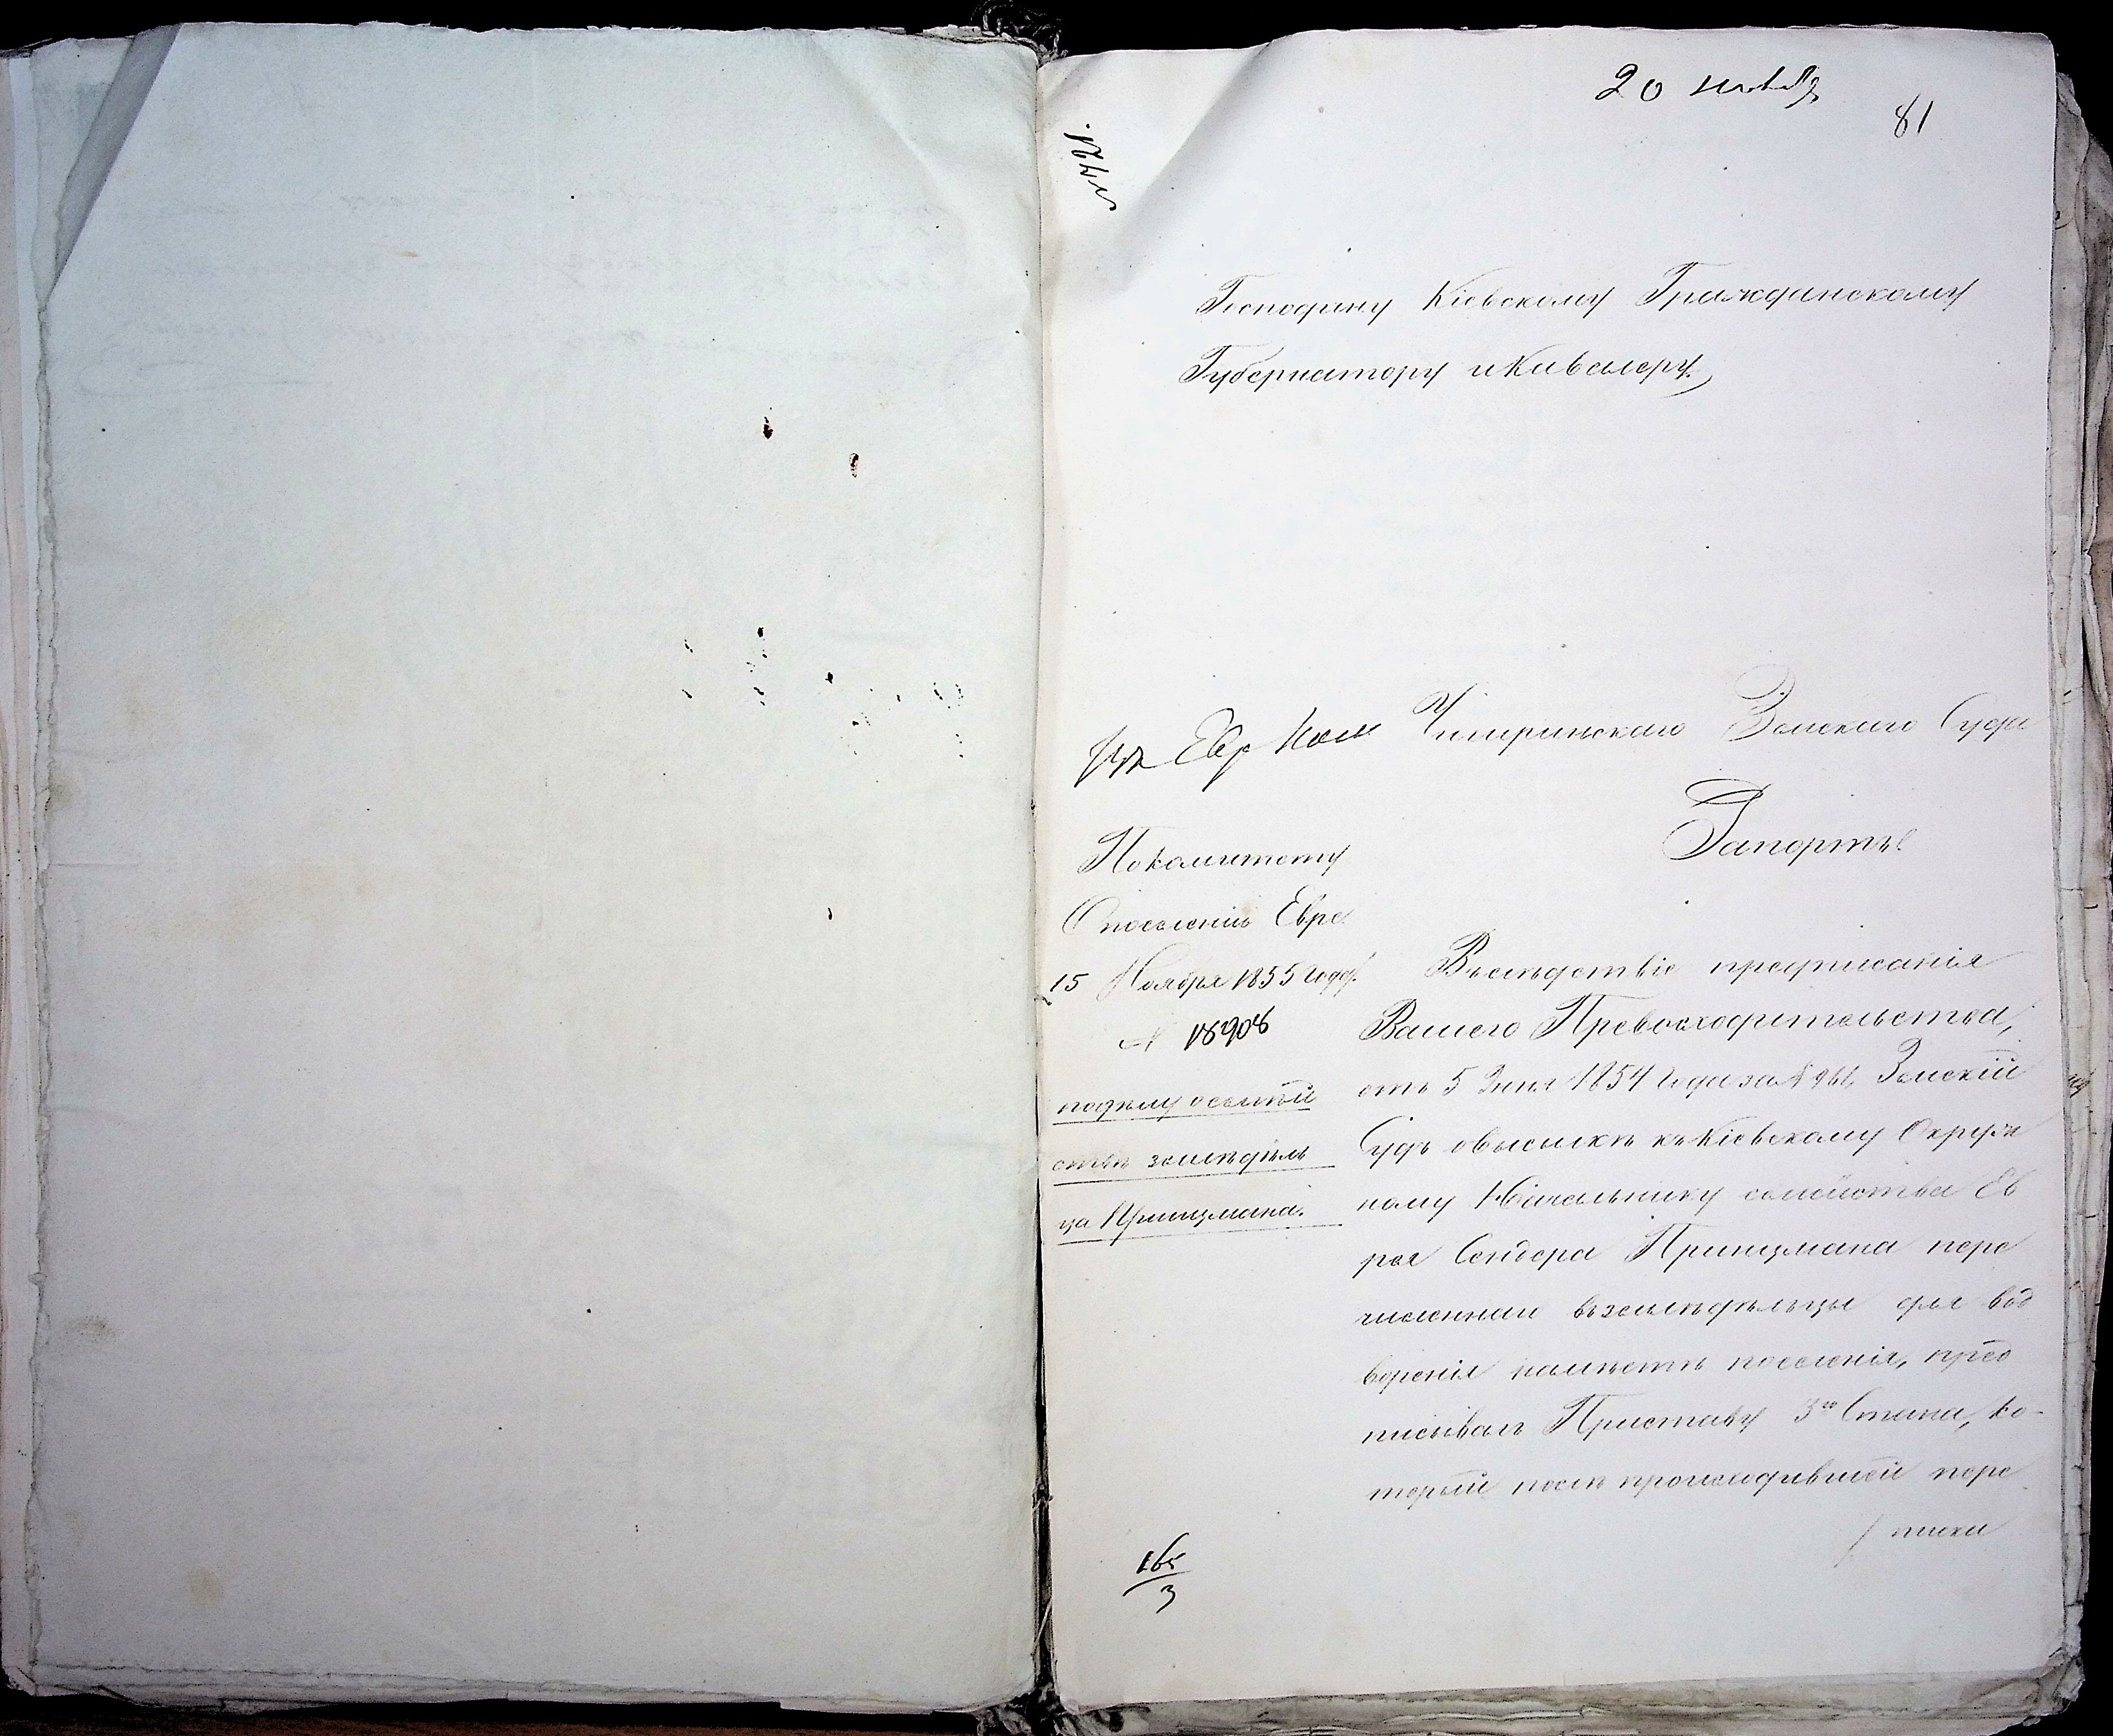 20 нояб
81
Господину Кіевскому Гражданскому
Губернатору и Кавалеру
Чигиринскаго Земскаго Суда
Рапортъ
По комитету
О поселеніи Евре.
15 Ноября 1855 года.
№ 18908
по дѣлу о семей
ствѣ земледѣль
ца Принцмана.
Въ слѣдствіе предписанія
Вашего Превосходительства,
отъ 5 Іюня 1854 года за № 961, Земскій
Судъ о высылкѣ къ Кіевскому Окруж
ному Начальнику семейства Ев
рея Сендера Принцмана пере
численнаго въ земледѣльцы для вод
воренія на мѣстѣ поселенія, пред
писывалъ Приставу 3го Стана, ко-
торый послѣ происходившей пере
писки
165
3